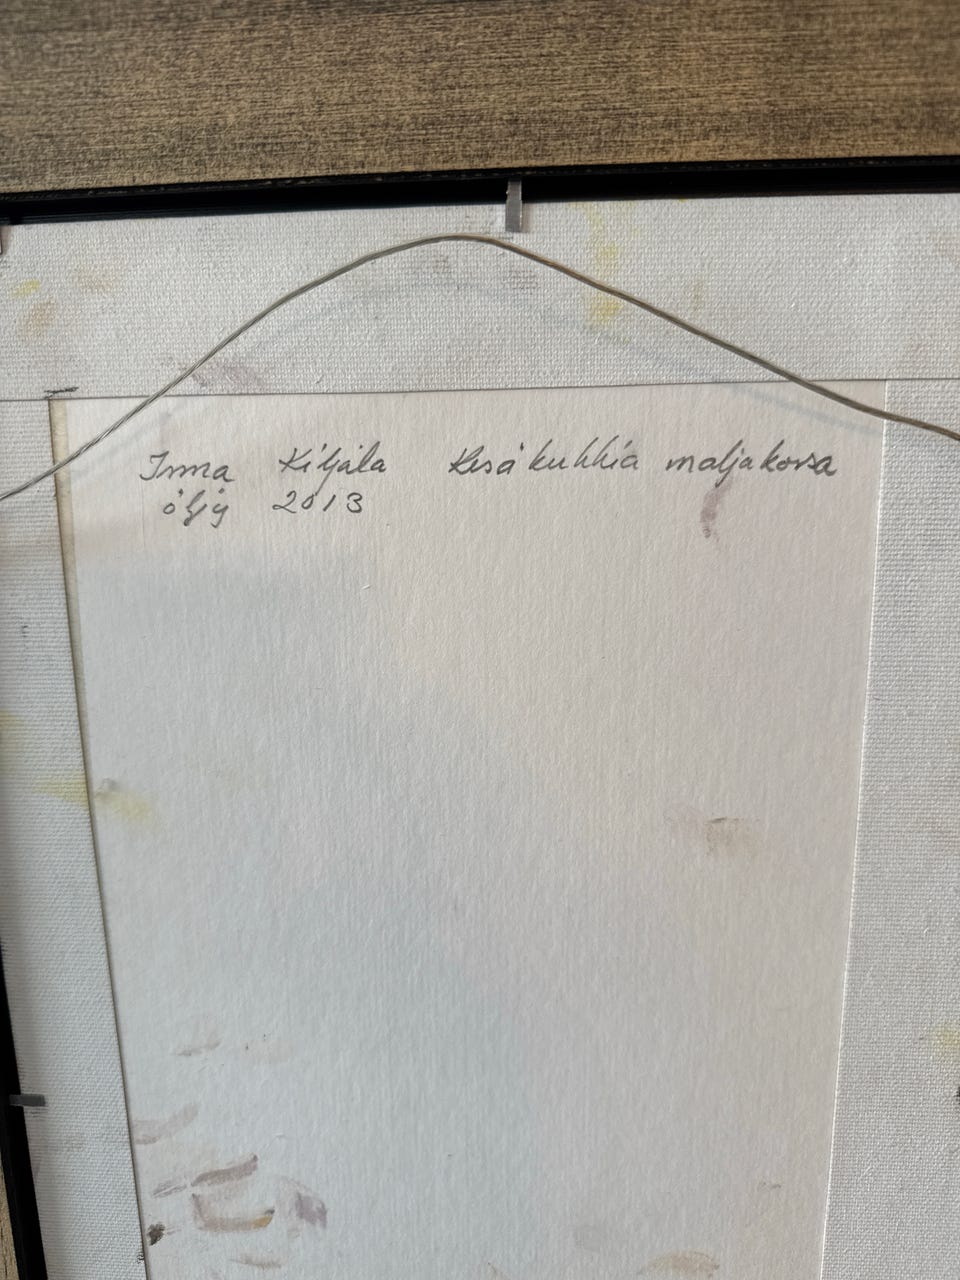 Irma Kiljala Kesäkukkia maljakossa
öljy 2013